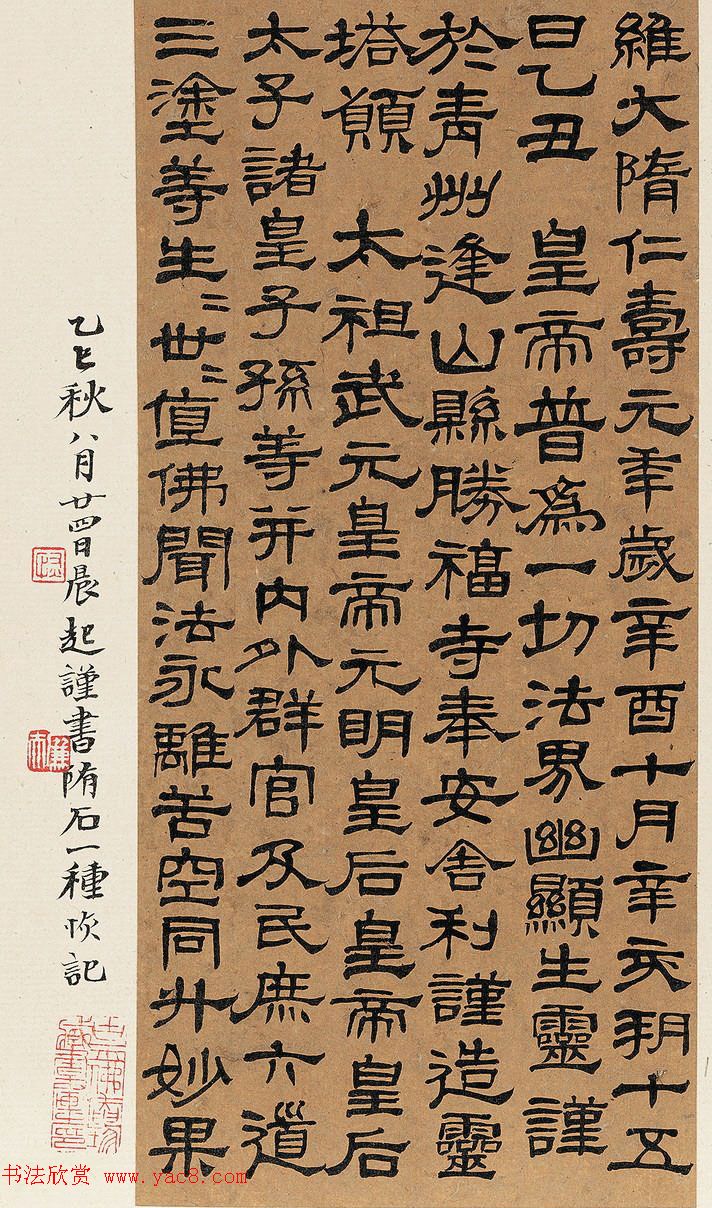 維大隋仁壽元年歲辛酉十月辛亥朔十五
日乙丑 皇帝普為一切法界幽顯生靈謹
於青州逢山縣勝福寺奉安舍利謹造靈
塔願 太祖武元皇帝元明皇后皇帝皇后
太子諸皇子孫等并内外群官及民庶六道
三塗等生〻世〻值佛聞法永離苦空同升妙果
乙巳秋八月廿四日晨起謹書隋石一種 記
书法欣赏 www.yac8.com